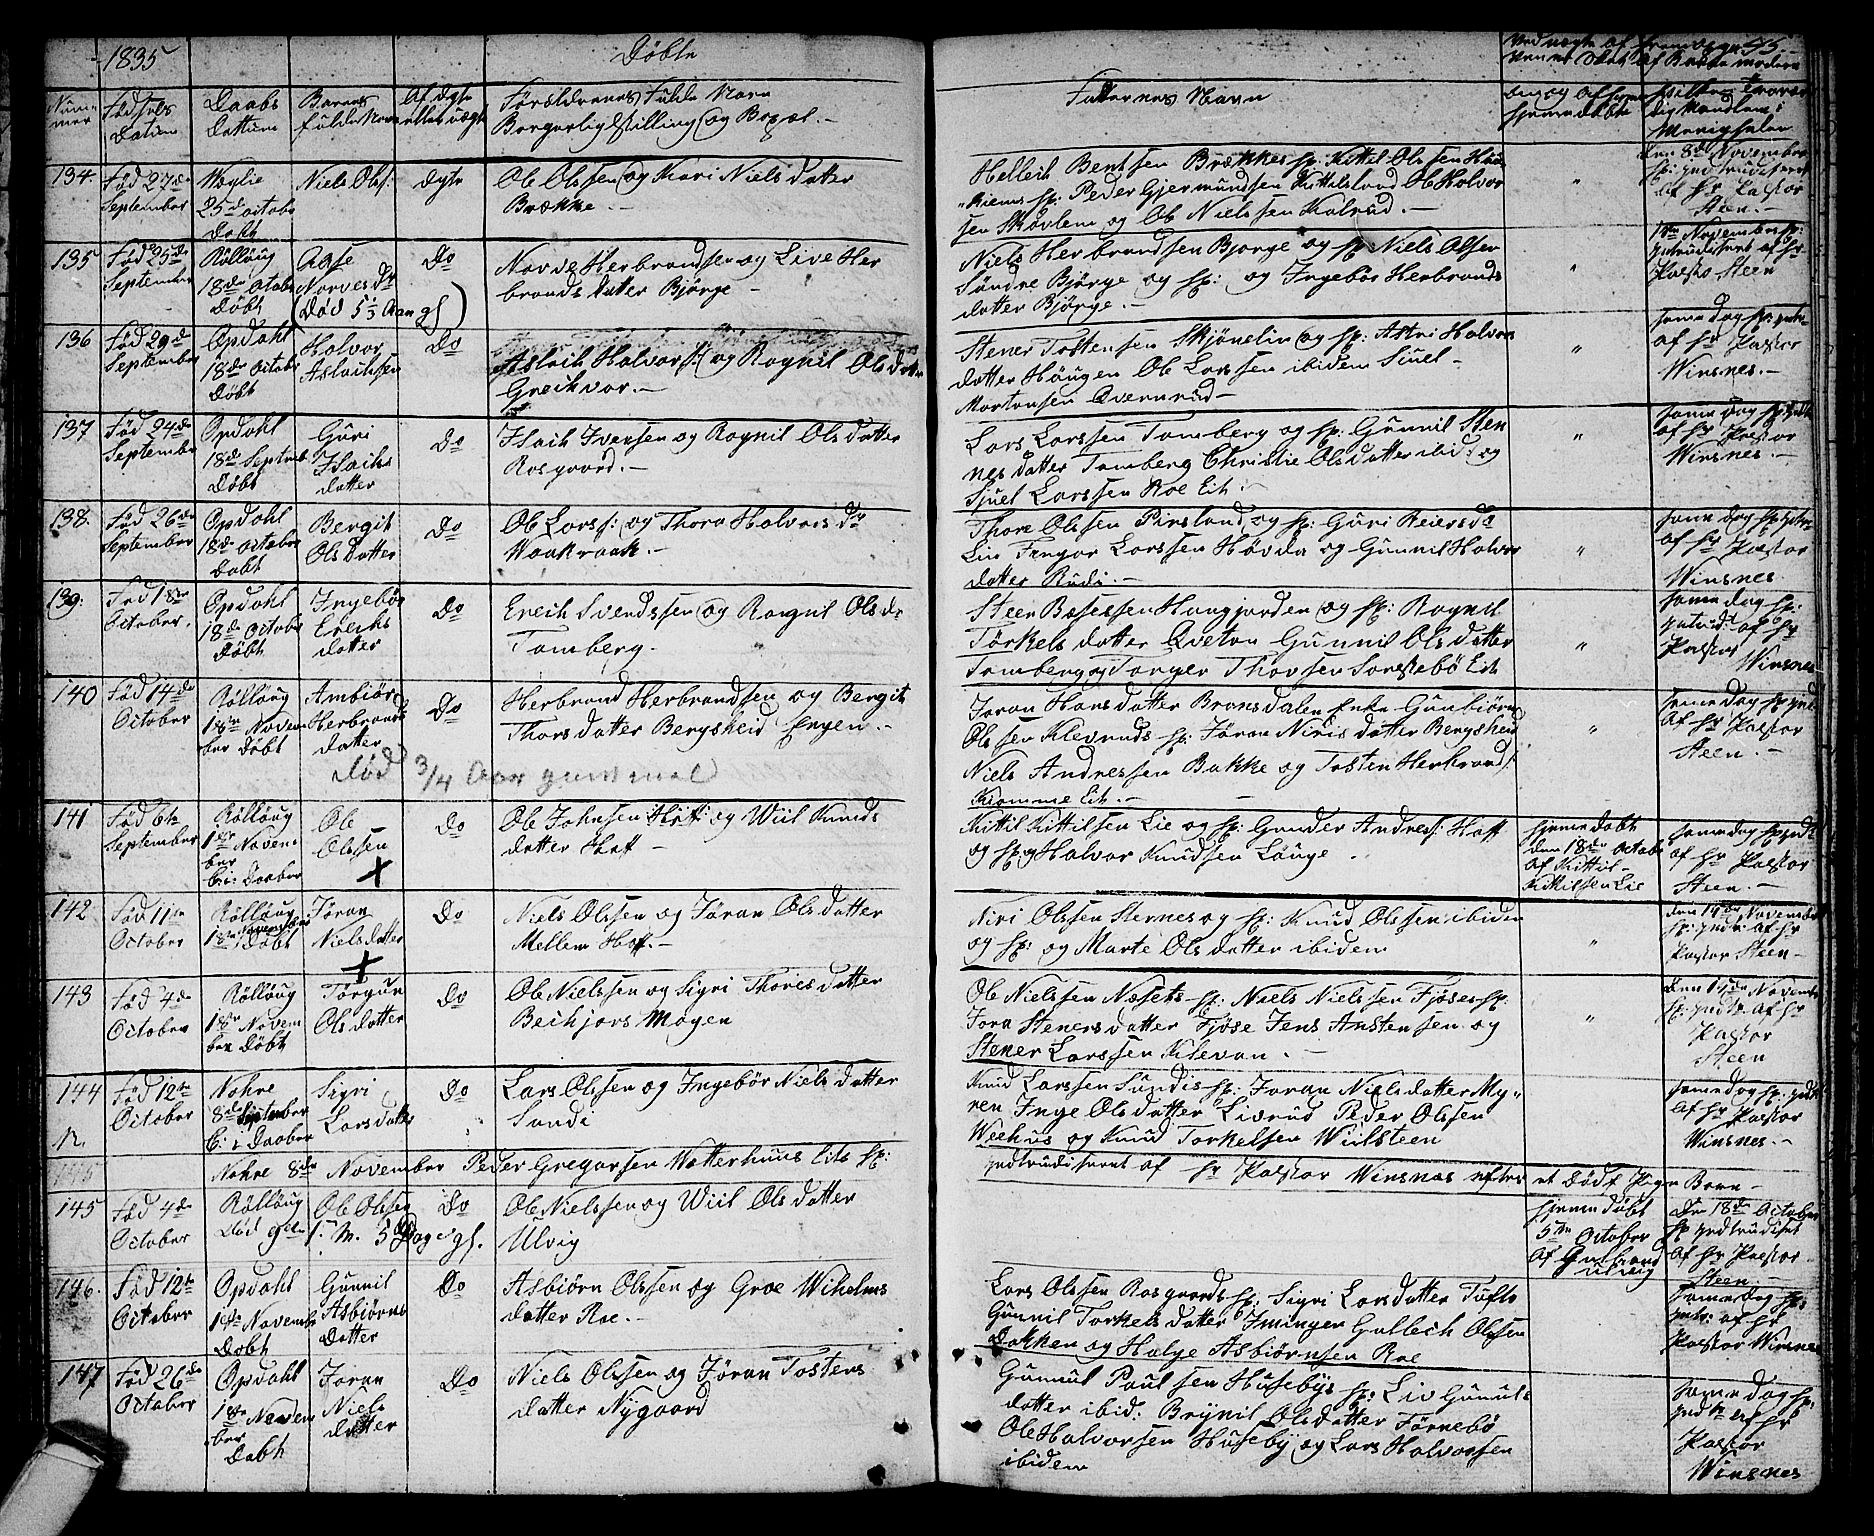 1835
Døbte
45.
Num-
mer
Fødsels
Datum
Daabs
Dattum
Barnets
fulde Navn
Af Ægte
eller uægte
Forældrenes Fulde Navn
Borgerlig Stilling og Bopæl.-
Faddernes Navn
134.
Fød 27de
September
Weglie
25de octobr
Døbt
Niels Ols:
Ægte
Ole Olssen og Kari Niels datter
Brække.-
Helleik Bentsen Brække sp: Kittil Olssen
Riems sp: Peder Gjermundsen Kittilsland Ole Halvor
sen Skovlem og Ole Nielssen Kalrud.-
den 8de November
af Hr Pastor
Steen.-
135
Fød 25de
September
Rolloug
18de Octobr
Døbt
Aase
Norves Dr
(Død 5½ Aar gl)
Do
Norve Herbrandsen og Live Her
brands datter Bjørge.-
Niels Herbrandsen Bjørge og sp: Niels Olsen
Søndre Bjørge og sp: og Ingebør Herbrands
datter Bjørge.-
1ste November sp:
introdiseret af Hr
Pastor Steen
136
Fød 29de
September
Opdahl
18de Octobr
Døbt
Halvor
Aslachsen
Do
Aslach Halvors: og Ragnil Ols datter
Greikvor.-
Stener Tostensen Skjønelin og sp: Astri Halvors
datter Haugen Ole Larssen ibidem Sjuel
Mortensen Qvernrud-
samme dag sp: intr.
af Hr Pastor
Winsnes.-
137
Fød 24de
September
Opdahl
18de Septemb
Døbt
Guri
Islachs
datter
Do
Islach Iversen og Ragnil Ols datter
Rosgaard.-
Lars Larssen Tomberg og sp: Gunnil Sten
nes datter Tomberg Christie Ols datter ibid: og
Sjuel Larssen Roe Eit:
samme dag sp: indtr
af Hr Pastor
Winsnes.-
138.
Fød 26de
September
Opdahl
18de Octobr
Døbt
Bergit
Ols Datter
Do
Ole Lars: og Thora Halvors dr
Waakraak.-
Thore Olssen Pirsland og sp: Guri Reiers dr
Lie Fingar Larssen Høvda og Gunnil Halvor
datter Rudi.-
samme dag sp: intr.
af Hr Pastor
Winsnes
139.
Fød 18de
October.
Opdahl
18de October
Døbt
Ingebør
Erichs
datter
Do
Erich Svendssen og Ragnil Ols dr
Tomberg.
Steen Bosessen Haugjorden og sp: Ragnil
Tørkels datter Qveton Gunnil Ols datter
Tomberg og Torger Thorsen Sorstebø Eit
samme dag sp:
introd: af Hr
Pastor
Winsnes
140
Fød 14de
October
Rolloug
1ste Novem
ber Døbt
Ambiør
Herbrands
datter
Død ¾ Aar gammel
Do
Herbrand Herbrandsen og Bergit
Thors datter Bergsheid Engen.-
Joran Hans datter Bronsdalen Enke Gunbiørn
Olssen Kleverud sp: Jøran Niris datter Bergsheid
Niels Andressen Bakke og Tosten Herbrands:
Kromme Eit.-
samme dag sp: indt
af Hr Pastor
Steen.-
141
Fød 6te
September
Rolloug
1ste Novem
ber
Ci: Daaber
Ole
Olssen
Do
Ole Johnsen Hoff: og Wiil Knuds
datter Hof.-
Kittil Kittilsen Lie og sp: Gunder Andres: Hoff
og sp: og Halvor Knudsen Lauge.
hjemme døbt
den 18de Octobr
af Kittil
Kittilsen Lie
samme dag sp: indt
af Hr Pastor
Steen.-
142.
Fød 11te
October
Rolloug
1ste November
Døbt
Jøran
Niels datter
Do
Niels Olssen og Jøran Ols datter
Mellem Hoff.-
Niri Olssen Sternes og sp: Knud Olssen ibidem
og sp: og Marte Ols datter ibidem
den 14de November
sp: indtr: af Hr
Pastor Steen-
143
Fød 4de
October
Rolloug
1ste Novem
ber Døbt
Torgun
Ols datter
Do
Ole Nielssen og Sigri Thores datter
Bechjors Mogen
Ole Nielssen Næsets sp: Niels Nielssen Fjøse sp:
Jora Steners datter Fjøse Jens Anstensen og
Stener Larssen Klevan.-
den 14de November
sp: indtr: af Hr
Pastor
Steen
144
Fød 12te
October
Nohre
8de September
C: i Daaber
Sigri
Lars datter
Do
Lars Olssen og Ingebør Niels datter
Sundi
Knud Larssen Sundi sp: Joran Niels datter My-
ren Inge Ols datter Liverud Peder Olssen
Weehus og Knud Torkelsen Wiilsteen
samme dag sp: indtr
af Hr Pastor
Winsnes.-
Nohre 8de November Peder Gregarsen Watterhuus Eits sp:
indtrudiseret af Hr Pastor Winsnes efter et Død f Pige Barn-
145
Fød 4de
October
Rolloug
Død 9de
Ole Olsen
1 M. 5 Dage gl.
Do
Ole Nielssen og Wiil Ols datter
Ulvig
hjemmedøbt
5te October
af Gulbrand
Ulvig
Den 18de October
sp: indtrudiset
af Hr Pastor
Steen.-
146.
Fød 12te
October
Opdahl
1ste Novemb
Døbt
Gunnil
Asbiørns
Datter
Do
Asbiørn Olssen og Groe Wilhelms
datter Roe.-
Lars Olssen Rosgaard sp: Sigri Lars datter Tufto
Gunnil Torkels datter Imingen Gulleck Olssen
Dokken og Halge Asbiørnsen Roe
samme dag sp:
intr: af Hr
Pastor Winsnes
147
Fød 26de
October
Opdahl
1ste Novem
ber
Døbt
Joran
Niels
datter
Do
Niels Olssen og Jøran Tostens
datter Nygaard
Gunnul Paulsen Husebys sp: Liv Gunuls
datter ibid: Brynil Ols datter Førnebø
Ole Halvorsen Huseby og Lars Halvorsen
ibidem
samme dag sp:
indtr af Hr
Pastor
Winsnes